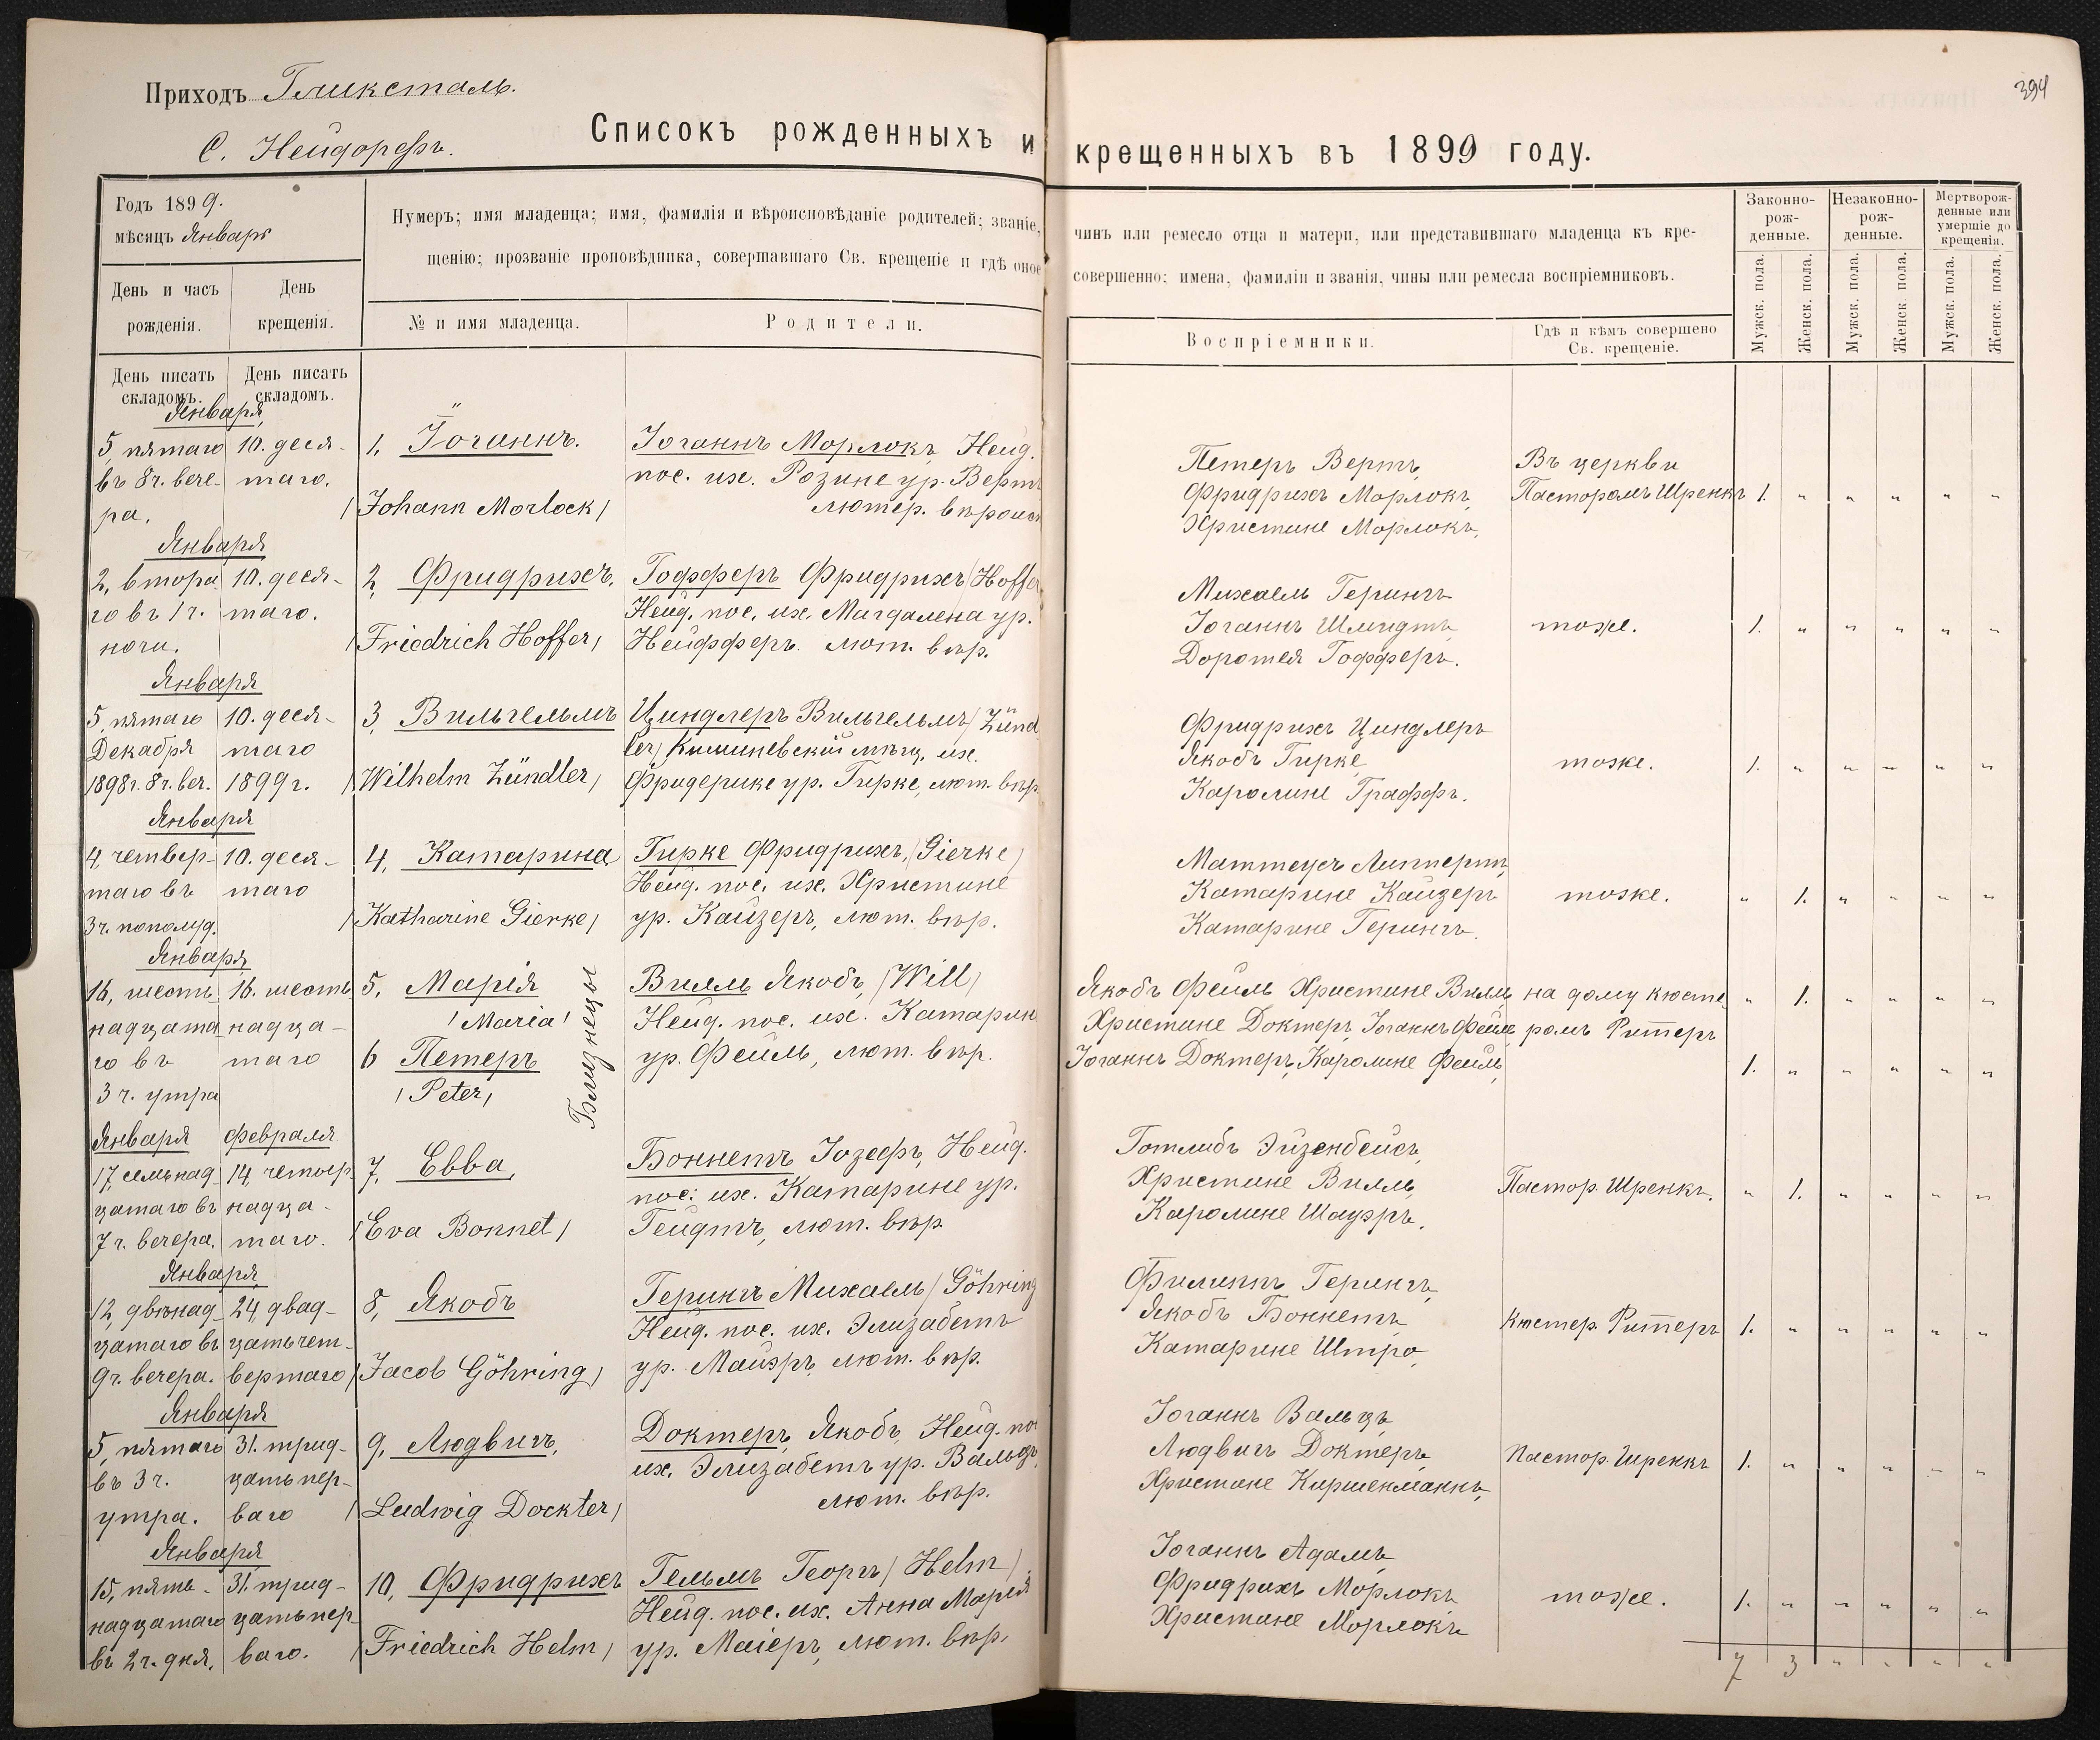 Приходъ Гликсталь.
С. Нейдорфъ.
394
Списокъ рожденныхъ и крещенныхъ въ 1899 году.
Годъ 1899.
мѣсяцъ Январь
День и часъ рожденія.
День крещенія.
Нумеръ; имя младенца; имя, фамилія и вѣроисповѣданіе родителей; званіе, чинъ или ремесло отца и матери, или представившаго младенца къ кре-
щенію; прозваніе проповѣдника, совершавшаго Св. крещеніе и гдѣ оное совершенно; имена, фамиліи и званія, чины или ремесла воспріемниковъ.
№ и имя младенца.
Родители.
Воспріемники.
Гдѣ и кѣмъ совершено Св. крещеніе.
Законно-рож-денные.
Незаконно-рож-денные.
Мертворож-денные или умершіе до крещенія.
Мужск. пола.
Женск. пола.
Мужск. пола.
Женск. пола.
Мужск. пола.
Женск. пола.
День писать складомъ.
День писать складомъ.
Января
5, пятаго
въ 8 ч. вече-
ра.
10. деся-
таго.
1, Іоганнъ.
/Johann Morlock/
Іоганнъ Морлокъ, Нейд.
пос. их. Розине ур. Вертъ
лютер. вѣроисп
Петеръ Вертъ,
Фридрихъ Морлокъ,
Христине Морлокъ,
Въ церкви
Пасторомъ Шренкъ
1. " " " " "
Января
2, втора-
го въ 1 ч.
ночи.
10. деся-
таго.
2, Фридрихъ.
/Friedrich Hoffer/
Гофферъ Фридрихъ /Hoffer
Нейд. пос. их. Магдалена ур.
Нейфферъ. лют. вѣр.
Михаель Герингъ
Іоганнъ Шмидтъ
Доротея Гофферъ.
тоже.
1. " " " " "
Января
5, пятаго
Декабря
1898 г. 8 ч. веч.
10. деся-
таго
1899 г.
3, Вильгельмъ
/Wilhelm Zündler/
Циндлеръ Вильгельмъ /Zünd
ler/ Кишиневскій мѣщ. их.
Фридерике ур. Гирке, лют. вѣр
Фридрихъ Циндлеръ
Якобъ Гирке
Каролине Граффъ.
тоже.
1. " " " " "
Января
4, четвер-
таго въ
3 ч. пополуд.
10. деся-
таго
4, Катарина
/Katharine Gierke/
Гирке Фридрихъ, /Gierke/
Нейд. пос. их. Христине
ур. Кайзеръ, лют. вѣр.
Маттеусъ Липпертъ,
Катарине Кайзеръ
Катарине Герингъ.
тоже.
" 1. " " " "
Января
16, шест-
надцата-
го въ
3 ч. утра
16. шест-
надца-
таго
5, Марія
/Maria/
6 Петеръ
/Peter/
Близнецы
Вилль Якобъ, /Will/
Нейд. пос. их. Катарин
ур. Фейль, лют. вѣр.
Якобъ Фейль Христине Вилль,
Христине Доктеръ, Іоганнъ Фейль,
Іоганнъ Доктеръ, Каролине Фейль,
на дому кюсте-
ромъ Риттеръ
" 1. " " " "
1. " " " " "
Января
17, семьнад-
цатаго въ
7 ч. вечера.
Февраля
14, четыр-
надца-
таго.
7, Евва,
/Eva Bonnet/
Боннетъ Іозефъ, Нейд.
пос. их. Катарине ур.
Гейдтъ, лют. вѣр
Готлибъ Эйзенбейсъ,
Христине Вилль,
Каролине Шауэръ.
Пастор. Шренкъ.
" 1. " " " "
Января
12, двѣнад-
цатаго въ
9 ч. вечера.
24, двад-
цать чет-
вертаго
8, Якобъ
/Jacob Göhring/
Герингъ Михаель /Göhring
Нейд. пос. их. Элизабетъ
ур. Майэръ, лют. вѣр.
Филиппъ Герингъ,
Якобъ Боннетъ
Катарине Штро,
Кюстер. Риттеръ
1. " " " " "
Января
5, пятаго
въ 3 ч.
утра.
31. трид-
цать пер-
ваго
9, Людвигъ,
/Ludwig Dockter/
Доктеръ, Якобъ, Нейд. по
их. Элизабетъ ур. Вальцъ,
лют. вѣр.
Іоганнъ Вальцъ,
Людвигъ Доктеръ,
Христине Киршенманнъ,
Пастор. Шренкъ
1. " " " " "
Января
15, пять-
надцатаго
въ 2 ч. дня.
31. трид-
цать пер-
ваго.
10, Фридрихъ
/Friedrich Helm/
Гельмъ Георгъ /Helm/
Нейд. пос. их. Анна Марія
ур. Маіеръ, лют. вѣр.
Іоганнъ Адамъ
Фридрихъ Морлокъ
Христине Морлокъ
тоже.
1. " " " " "
7 3 " " " "